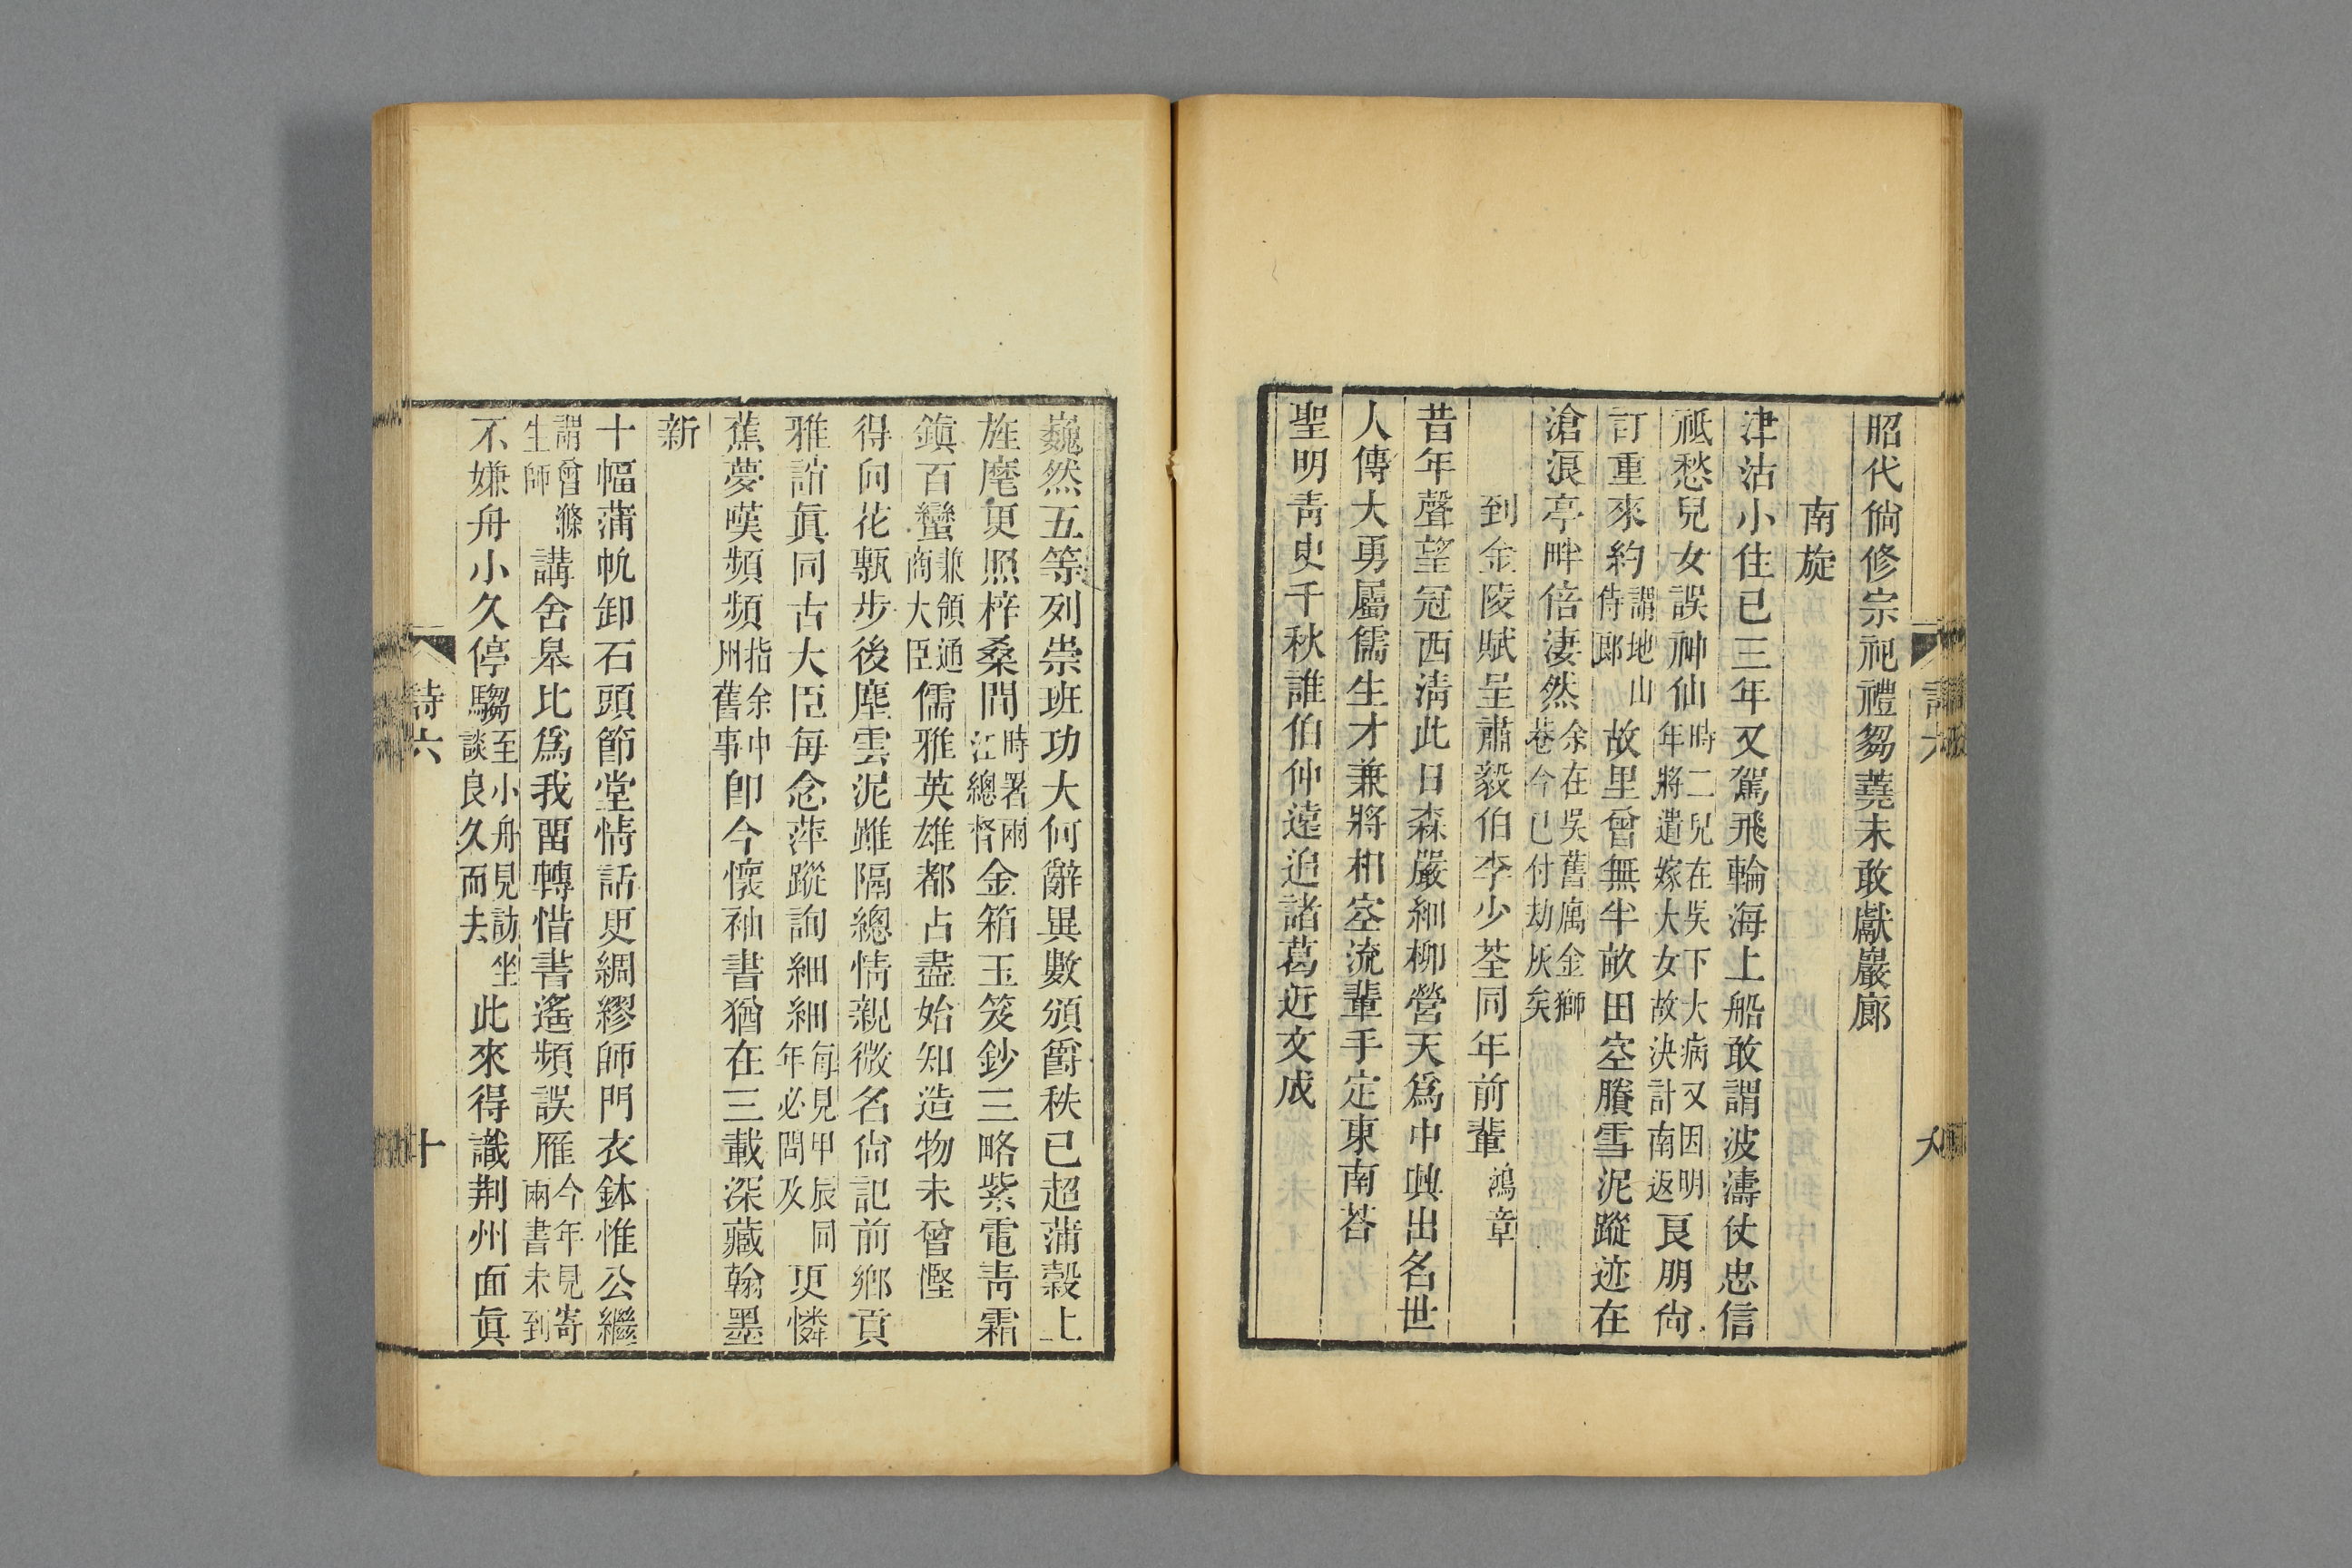 昭代倘修宗祀禮芻蕘未敢獻巖廊
南旋
津沽小住已三年又駕飛輪海上船敢謂波濤仗忠信
祗愁兒女誤神仙時二兒在吳下大病又因明年將遣嫁大女故決計南返良朋尙
訂重來約謂地山侍郞故里曾無半畝田空賸雪泥蹤迹在
滄浪亭畔倍淒然余在吳舊寓金獅巷今已付劫灰矣
到金陵賦呈肅毅伯李少荃同年前輩鴻章
昔年聲望冠西淸此日森嚴細柳營天爲中興出名世
人傳大勇屬儒生才兼將相空流輩手定東南荅
聖明靑史千秋誰伯仲遠追諸葛近文成
詩六
巍然五等列崇班功大何辭異數頒爵秩已超蒲穀上
旌麾更照梓桑間時署兩江總督金箱玉笈鈔三略紫電靑霜
鎭百蠻兼領通商大臣儒雅英雄都占盡始知造物未曾慳
得向花甎步後塵雲泥雖隔總情親微名尙記前鄕貢
雅誼眞同古大臣每念萍蹤詢細細每見甲辰同年必問及更憐
蕉夢嘆頻頻指余中州舊事卽今懷袖書猶在三載深藏翰墨
新
十幅蒲帆卸石頭節堂情話更綢繆師門衣鉢惟公繼
謂曾滌生師講舍皋比爲我畱轉惜書遙頻誤雁今年見寄兩書未到
不嫌舟小久停騶至小舟見訪坐談良久而去此來得識荆州面眞
詩六
十